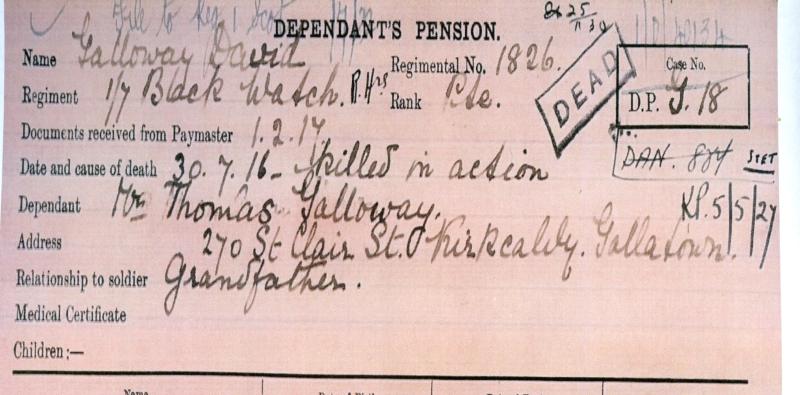 File to Reg.
DEPENDANT'S PENSION.
Name Galloway David
Regimental No. 1826.
DEAD
Case No.
D.P. G. 18
Regiment 1/7 Black Watch. R. Hrs
Rank Pte.
Documents received from Paymaster 1.2.17
DAN. 884 STET
Date and cause of death 30.7.16 - Killed in action
Dependant Mr Thomas Galloway.
KP. 5/5/27
Address 270 St Clair St. Kirkcaldy. Gallatown.
Relationship to soldier Grandfather.
Medical Certificate
Children :—
Name